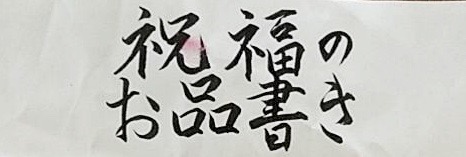 祝福の
お品書き